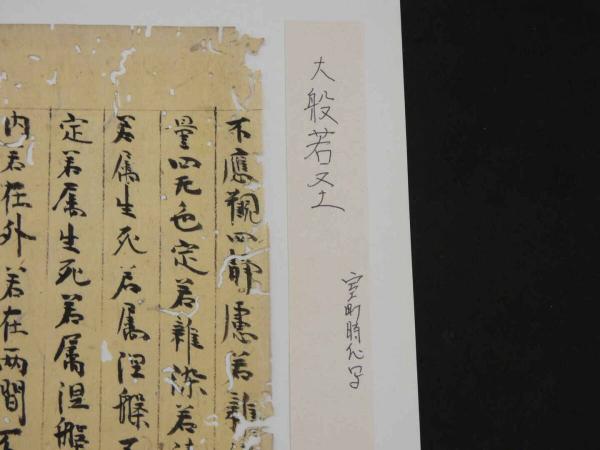 大般若圣
室町時代写
不應觀四靜慮若雜
量四无色定若雜染若
若属生死若属涅槃不
定若属生死若属涅槃
内若在外若在兩間不